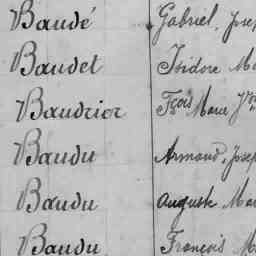 Baudé Gabriel, Josep
Baudet Isidore Ma
Baudrier Fçois Marie
Baudu Armand Josep
Baudu Auguste Mar
Baudu François M